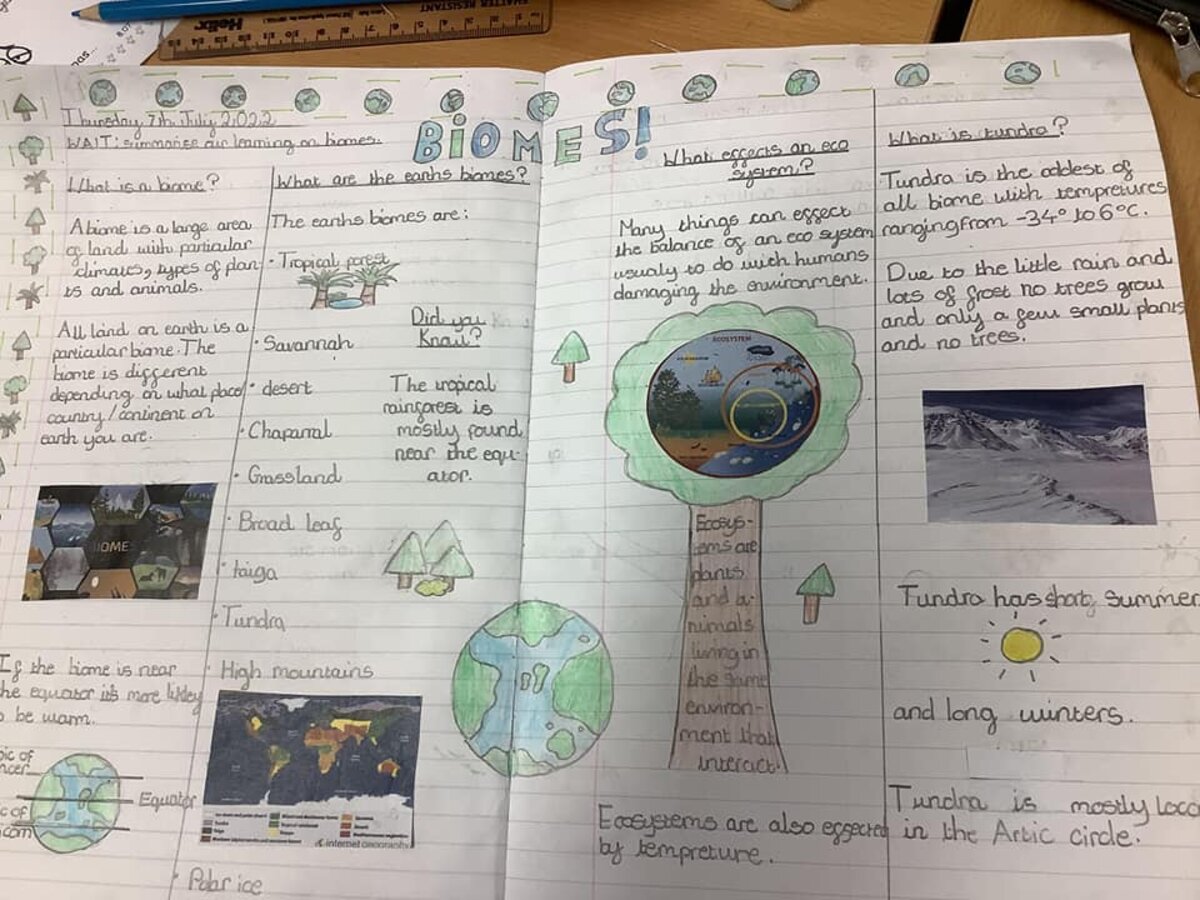 SHATTER RESISTANT
Helix
Thursday 7th July 2022
WALT: summarise our learning on biomes.
BIOMES!
What is a biome?
A biome is a large area
of land with particular
climates, types of plan
ts and animals.
All land on earth is a
particular biome. The
biome is different
depending on what place
country/continent on
earth you are.
BIOME
If the biome is near
the equator it's more likley
to be warm.
Equator
What are the earths biomes?
The earths biomes are:
• Tropical forest
• Savannah
• desert
• Chaparral
• Grassland
• Broad leaf
• taiga
• Tundra
• High mountains
internet geography
• Polar ice
Did you
Know?
The tropical
rainforest is
mostly found
near the equ-
ator.
What effects an eco
system?
Many things can effect
the balance of an eco system
usualy to do with humans
damaging the environment.
ECOSYSTEM
Ecosys-
tems are
plants
and a-
nimals
living in
the same
environ-
ment that
interact.
Ecosystems are also effected
by tempreture.
What is tundra?
Tundra is the coldest of
all biome with tempretures
ranging from -34° to 6°C.
Due to the little rain and
lots of frost no trees grow
and only a few small plants
and no trees.
Tundra has short summer
and long winters.
Tundra is mostly loca
in the Artic circle.